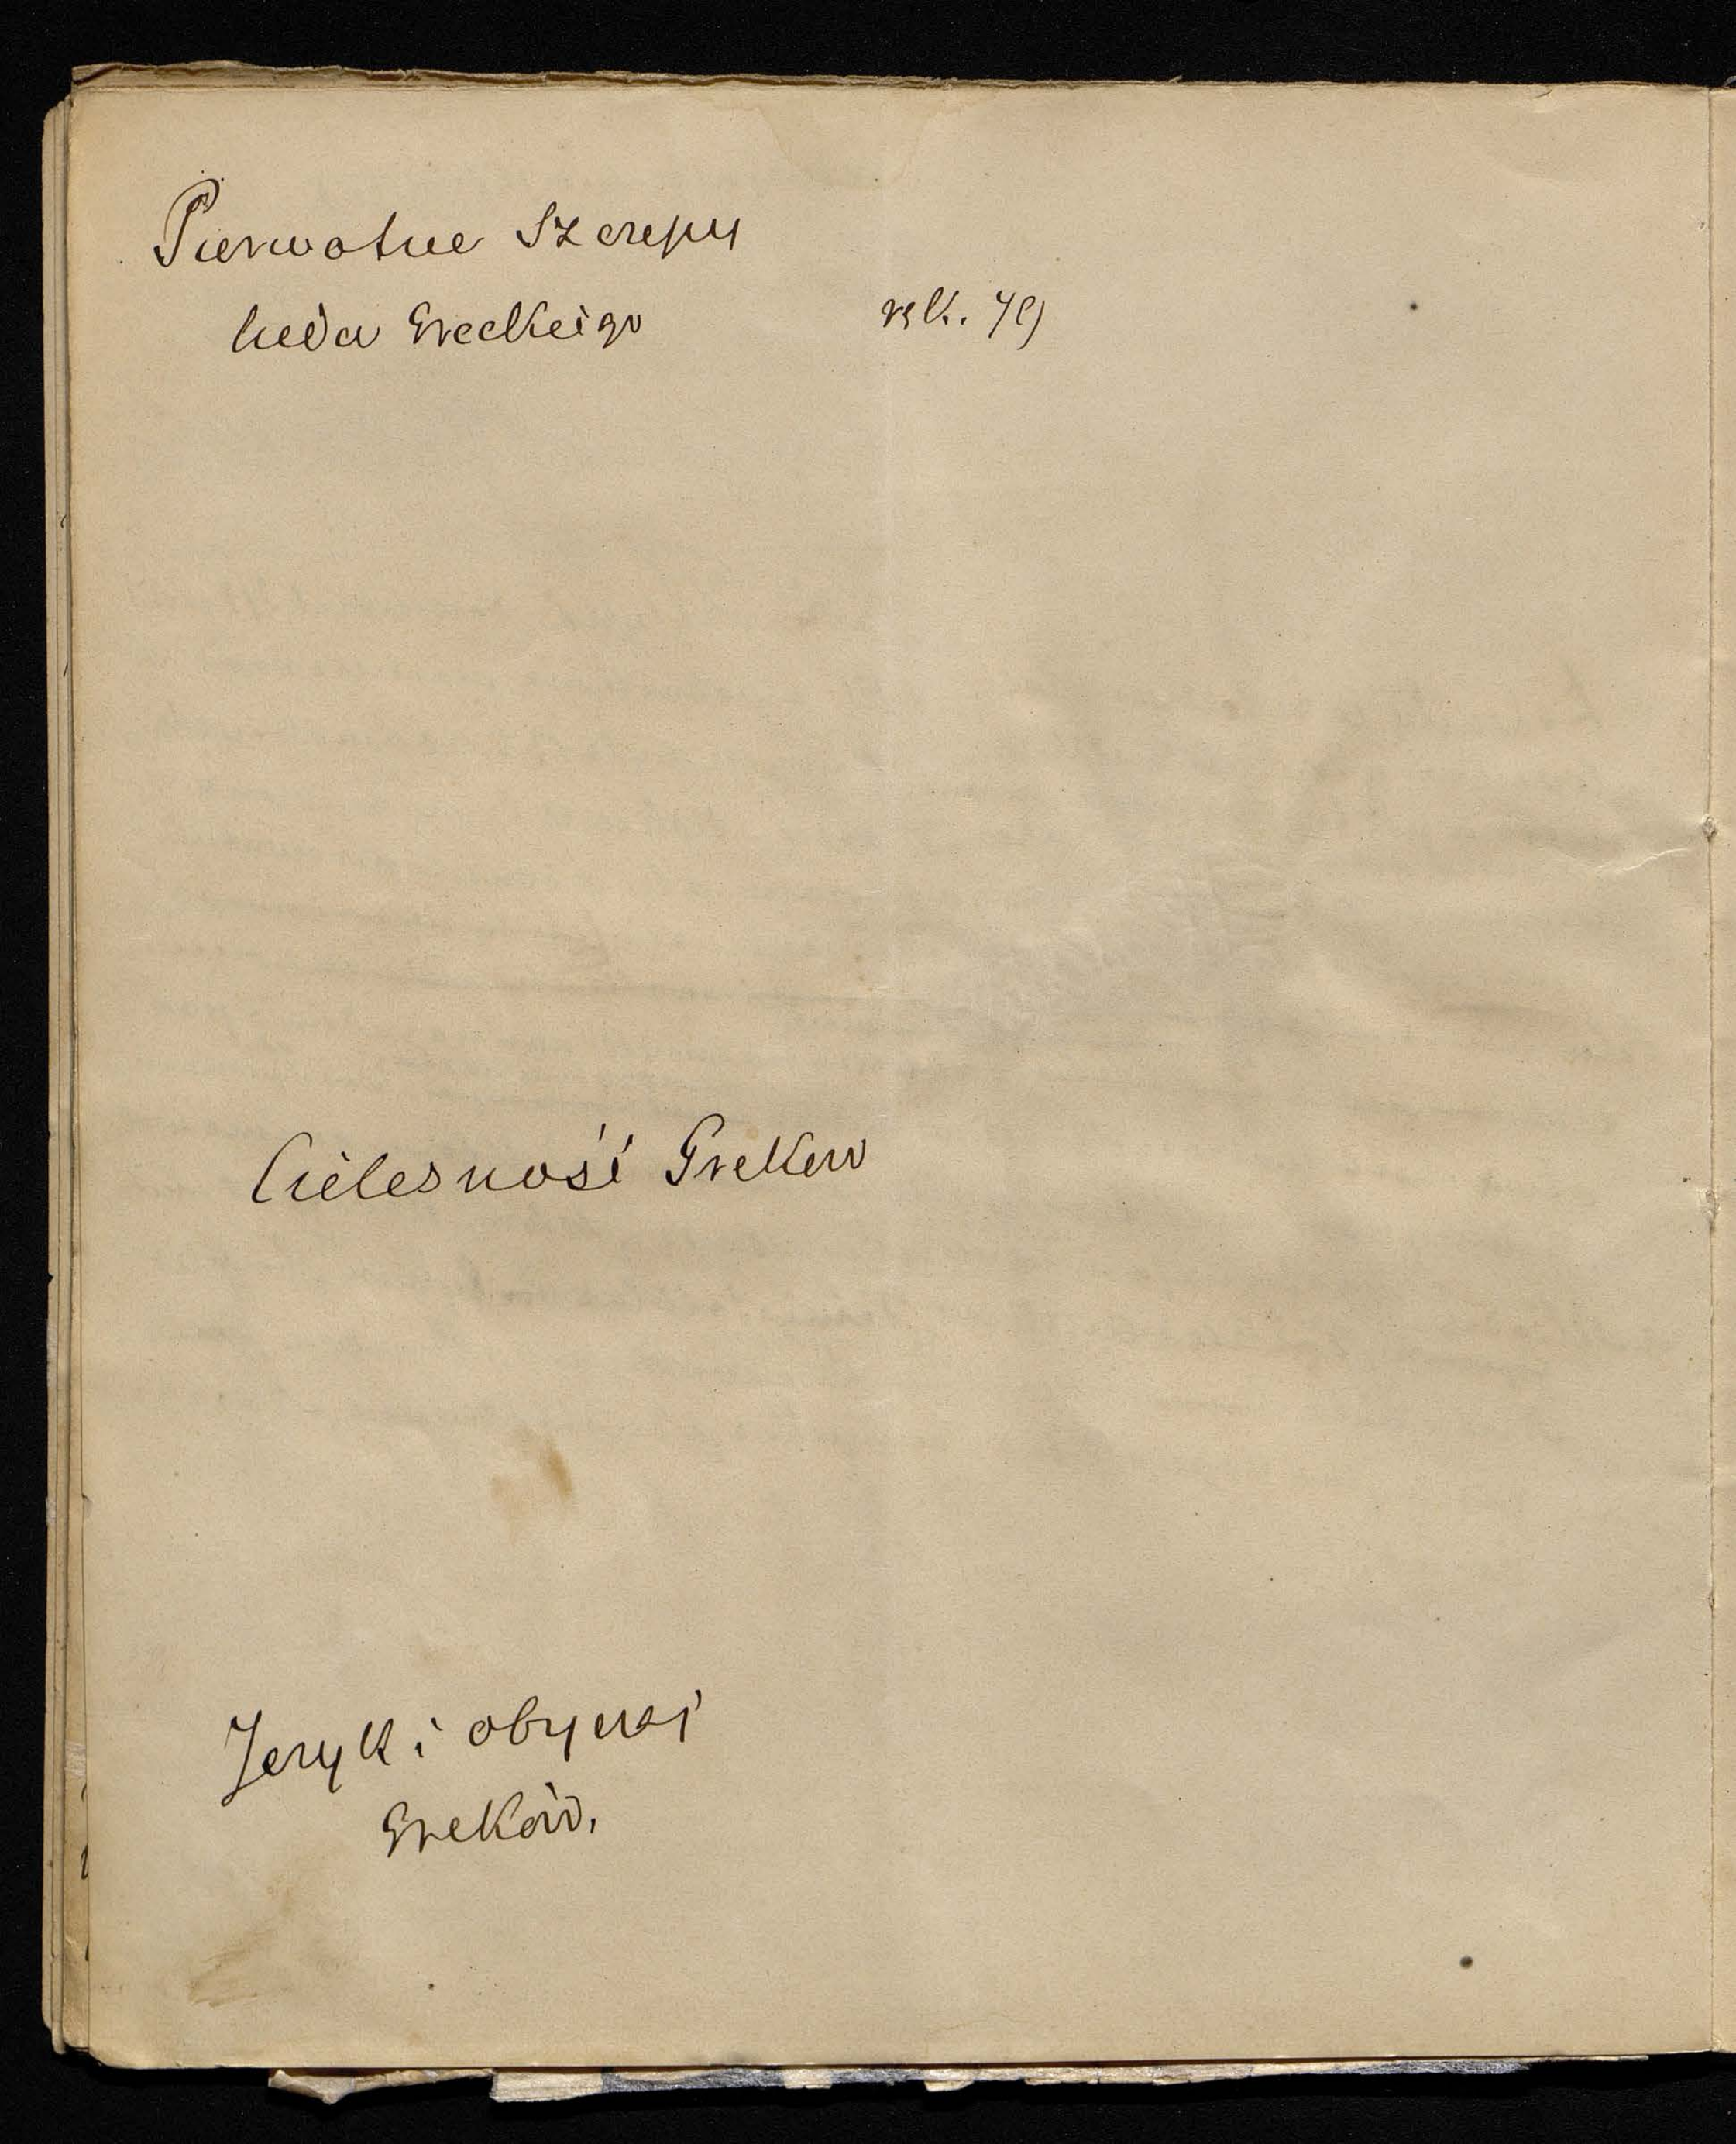 Pierwotne Szczepy
ludu Greckiego
rsk. 49
Cielesność Greków
Język i obyczaj
Greków.